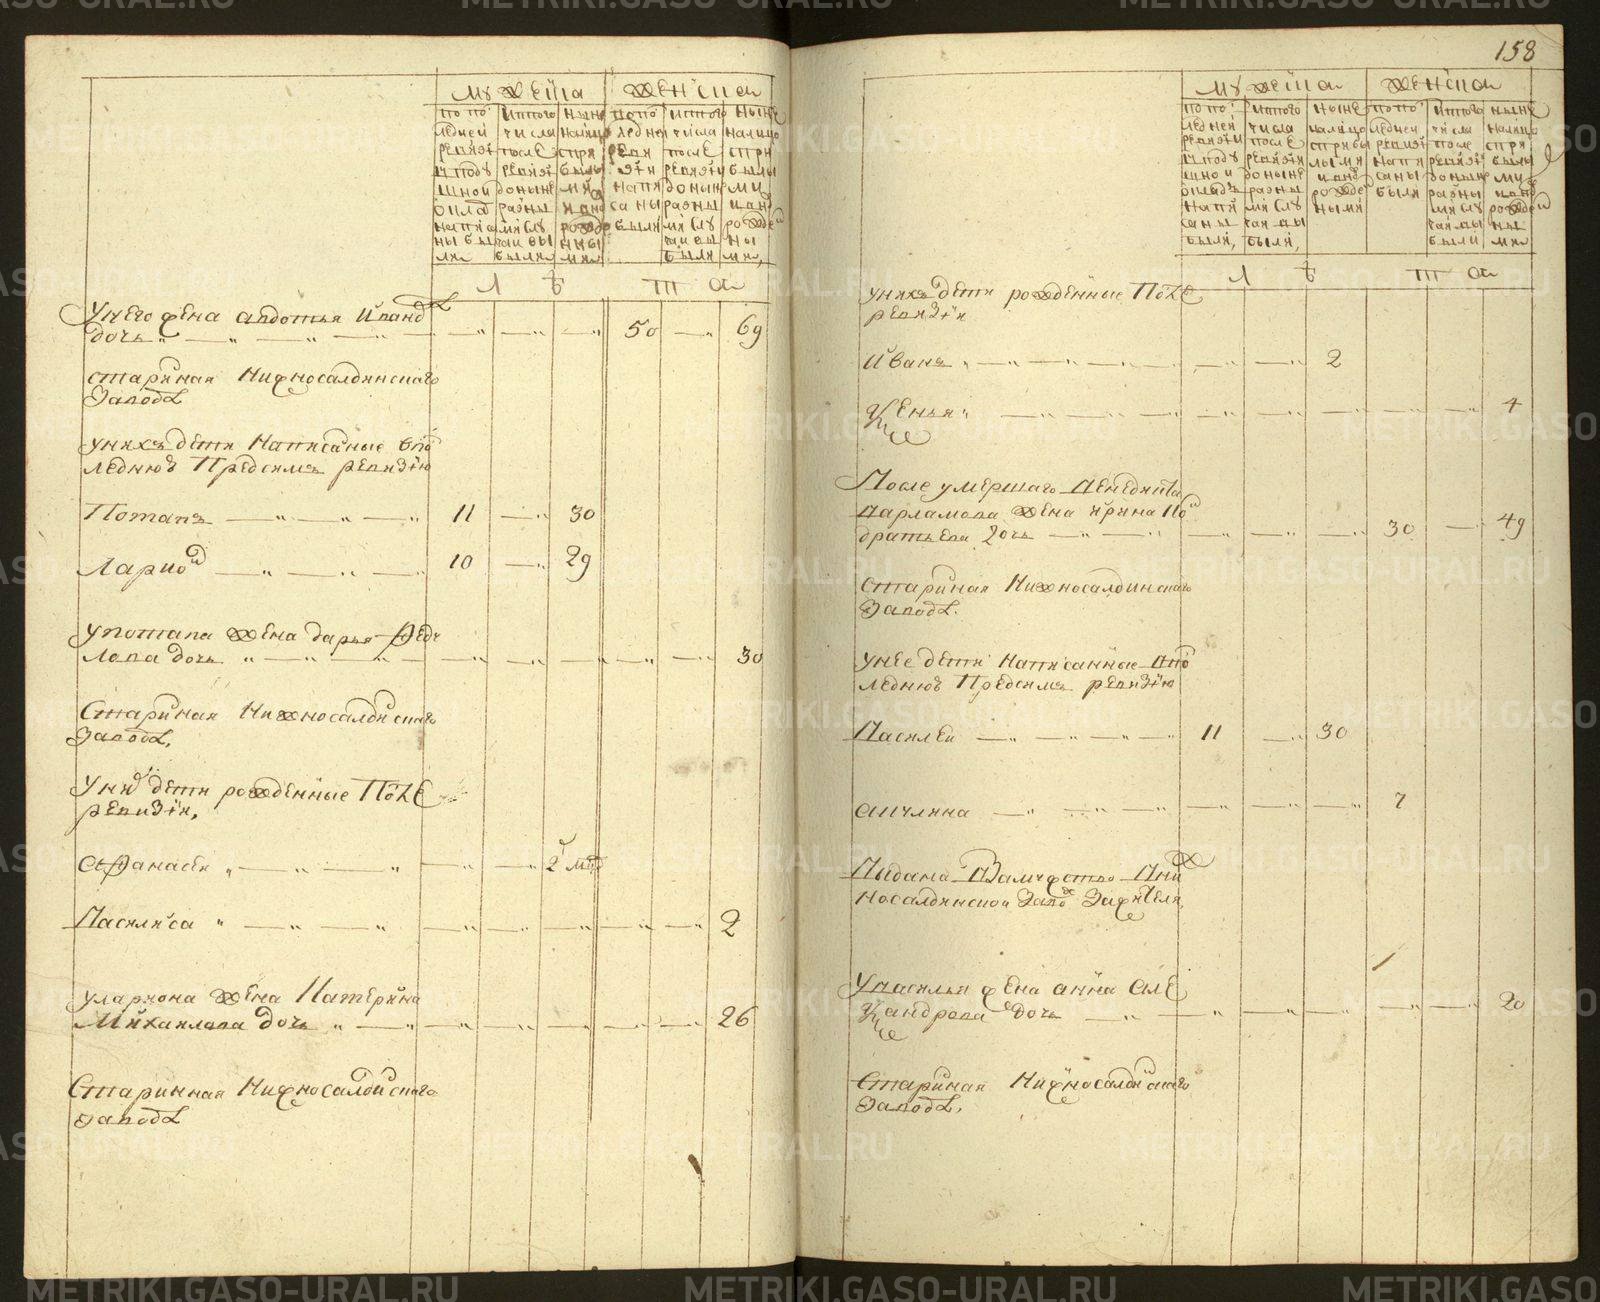 мужеска
женска
по по
следней
ревизии
и подуш
ной
окладъ
написа
ны бы
ли
ис того
числа
после
ревизии
до ныне
разны
ми слу
чаи вы
были
ныне
налицо
с при
былы
ми и
внов
рожде
нны
ми
по по
следней
реви
зии
напи
саны
были
ис того
числа
после
ревизии
до ныне
разны
ми слу
чаи вы
были
ныне
налицо
с при
былы
ми и
внов
рожде
нны
ми,
Л Ѣ Т А
У него жена авдотья Иванова
дочь 50 69
старинная Нижносалдинского
Завода
у нихъ дети Написанные в по
следнюю Пред симъ ревизию
Потапъ 11 30
Ларион 10 29
у потапа жена дарья Фед
лова дочь 30
Старинная Нижносалдинского
Завода,
У них дети рожденные После
ревизии,
Афанасеи 2 мсц
Василиса 2
у лариона жена Катерина
Михаилова дочь 26
Старинная Нижносалдинского
завода
158
мужеска
женска
по по
следней
ревизии
и поду
шной
окладъ
напи
саны
были,
ис того
числа
после
ревизии
до ныне
разны
ми слу
чаи вы
были,
ныне
налицо
с прибы
лыми
и внов
рожде
ными
по по
следней
ревизии
напи
саны
были
ис того
числа
после
ревизии
до ныне
разны
ми слу
чаи вы
были
ныне
налицо
с при
былы
ми
и внов
рожде
ны
ми
Л Ѣ Т А
у нихъ дети рожденные После
ревизии
Иванъ 2
Ксенья 4
После умершаго Венедикта
Варламова жена ирина Ко
дратьева дочь 30 49
Старинная Нижносалдинского
Завода.
у нее дети Написанные в по
следнюю Пред симъ ревизию
Василеи 11 30
акилина 7
Выдана В замужство В ниж
носалдинской Завод За жителя,
У василья жена анна але
ксандрова дочь 20
Старинная Нижносалдинского
Завода,
METRIKI.GASO-URAL.RU